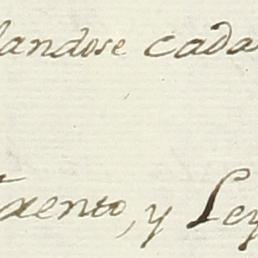 landose cada
ento, y Ley